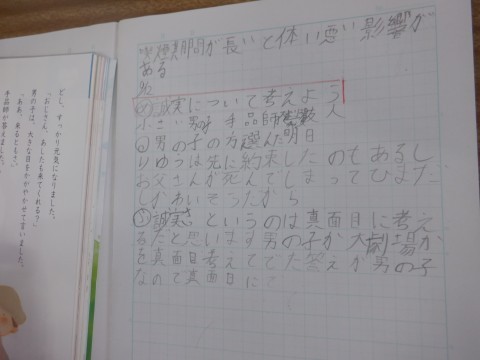 喫煙期間が長いと体い悪い影響が
ある
%
め 誠実について考えよう
小さい男子 手品師 人
男の子の方選んだ 明日
りゆうは先に約束したのもあるし
お父さんが死んでしまってひまだ
しかわいそうだから
誠実さというのは真面目に考え
るだと思います男の子か大劇場か
を真面目考えてでた答えが男の子
なので真面目に
どし、すっかり元気になりました。
「おじさん、あしたも来てくれる？」
男の子は、大きな目をかがやかせて言いました。
「ああ、来るともさ。」
手品師が答えました。